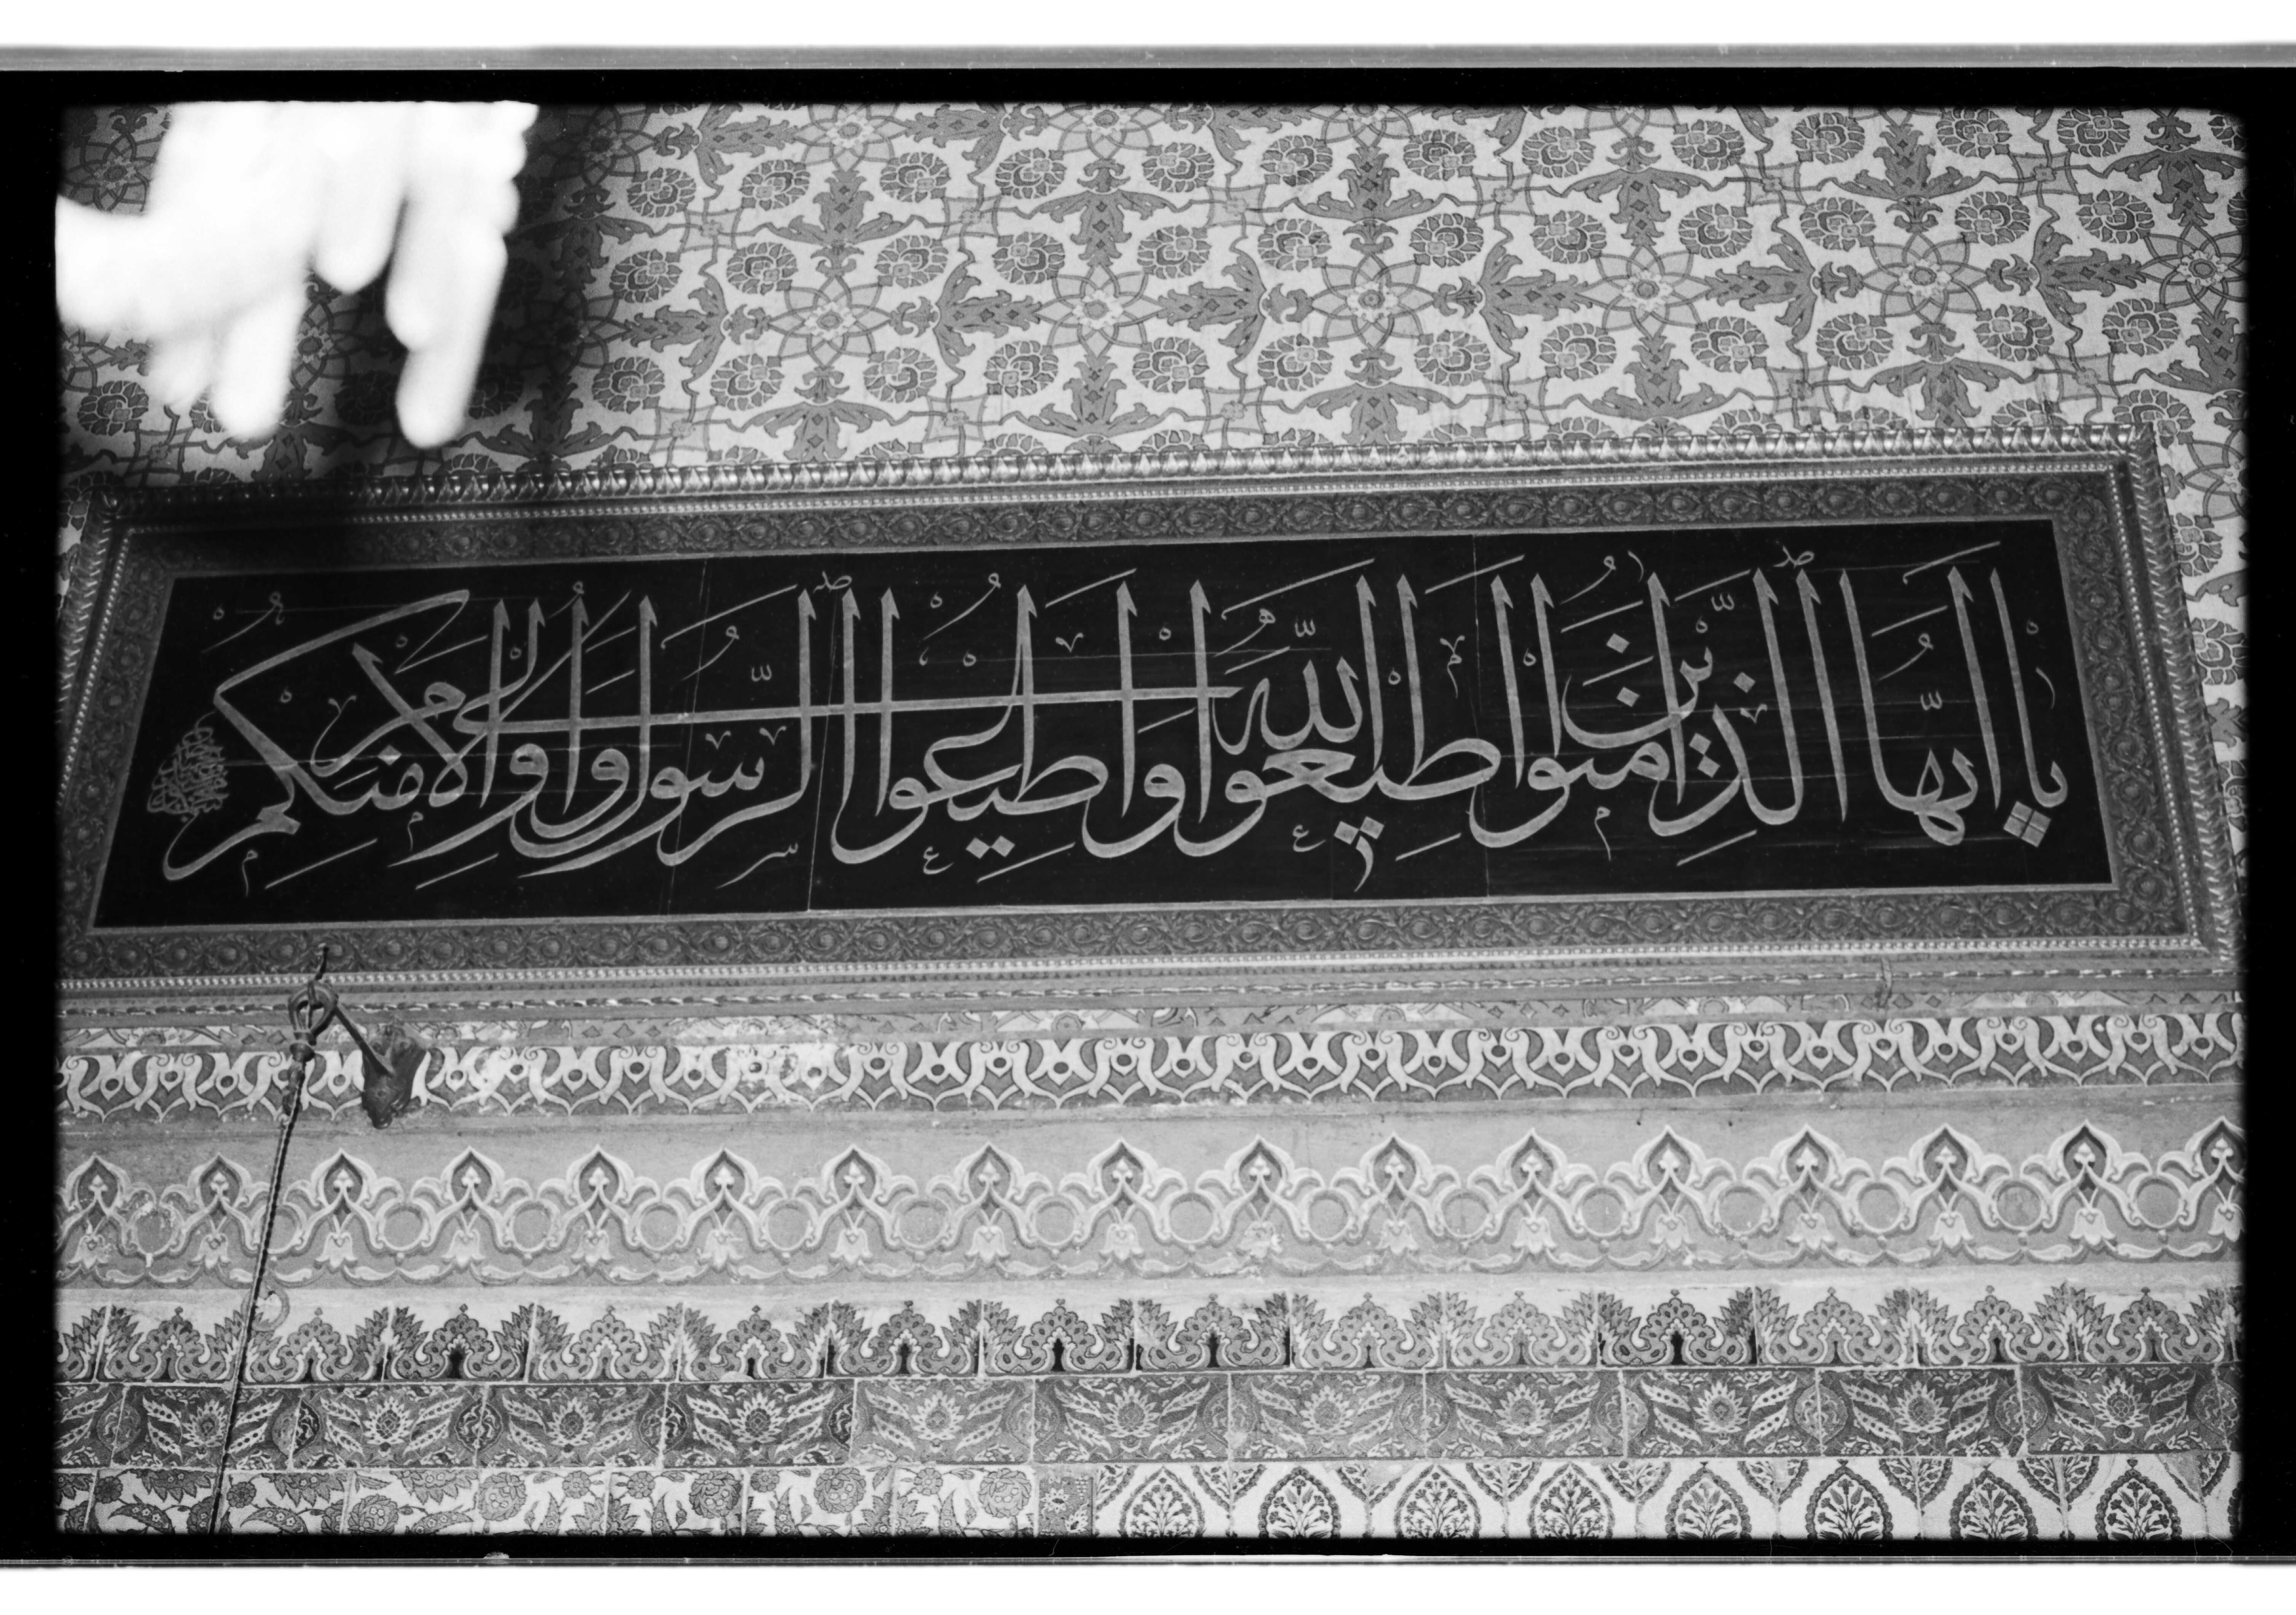 يا ايها الذين امنوا اطيعوا الله واطيعوا الرسول واولى الامر منكم